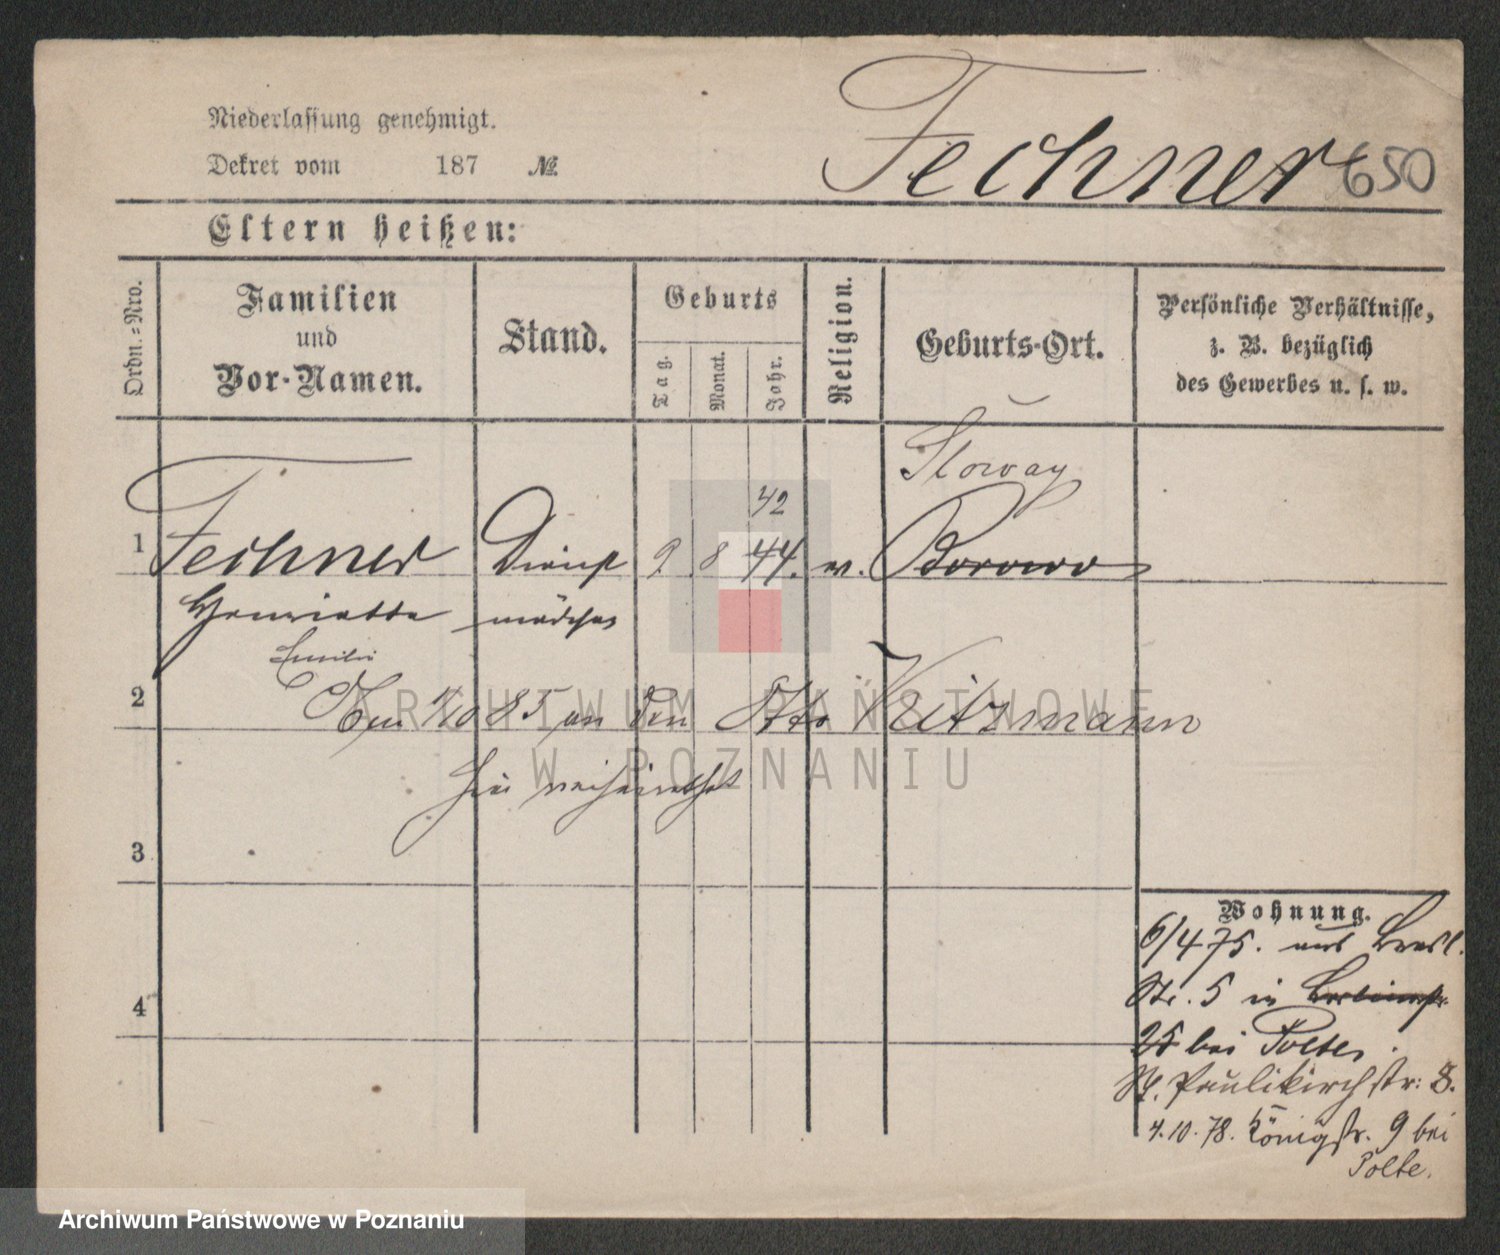 Niederlassung genehmigt.
Dekret vom 187 №
Fechner 650
Eltern heißen:
Ordn.=Nro.
Familien
und
Vor-Namen.
Stand.
Geburts
Tag.
Monat.
Jahr.
Religion.
Geburts-Ort.
Persönliche Verhältnisse,
z. B. bezüglich
des Gewerbes u. s. w.
42
1 Fechner Dienst 9 8 44. ev. Borowo
Henriette mädchen
Emilie
2
Am 1/10 85 an den Otto Weitzmann
hier verheirathet
3
4
Wohnung.
6/4 75. aus Bresl.
Str. 5 in
25 bei Polte.
St. Paulikirchstr: 8.
4.10.78. Königstr. 9 bei
Polte.
ARCHIWUM PAŃSTWOWE
W POZNANIU
Archiwum Państwowe w Poznaniu